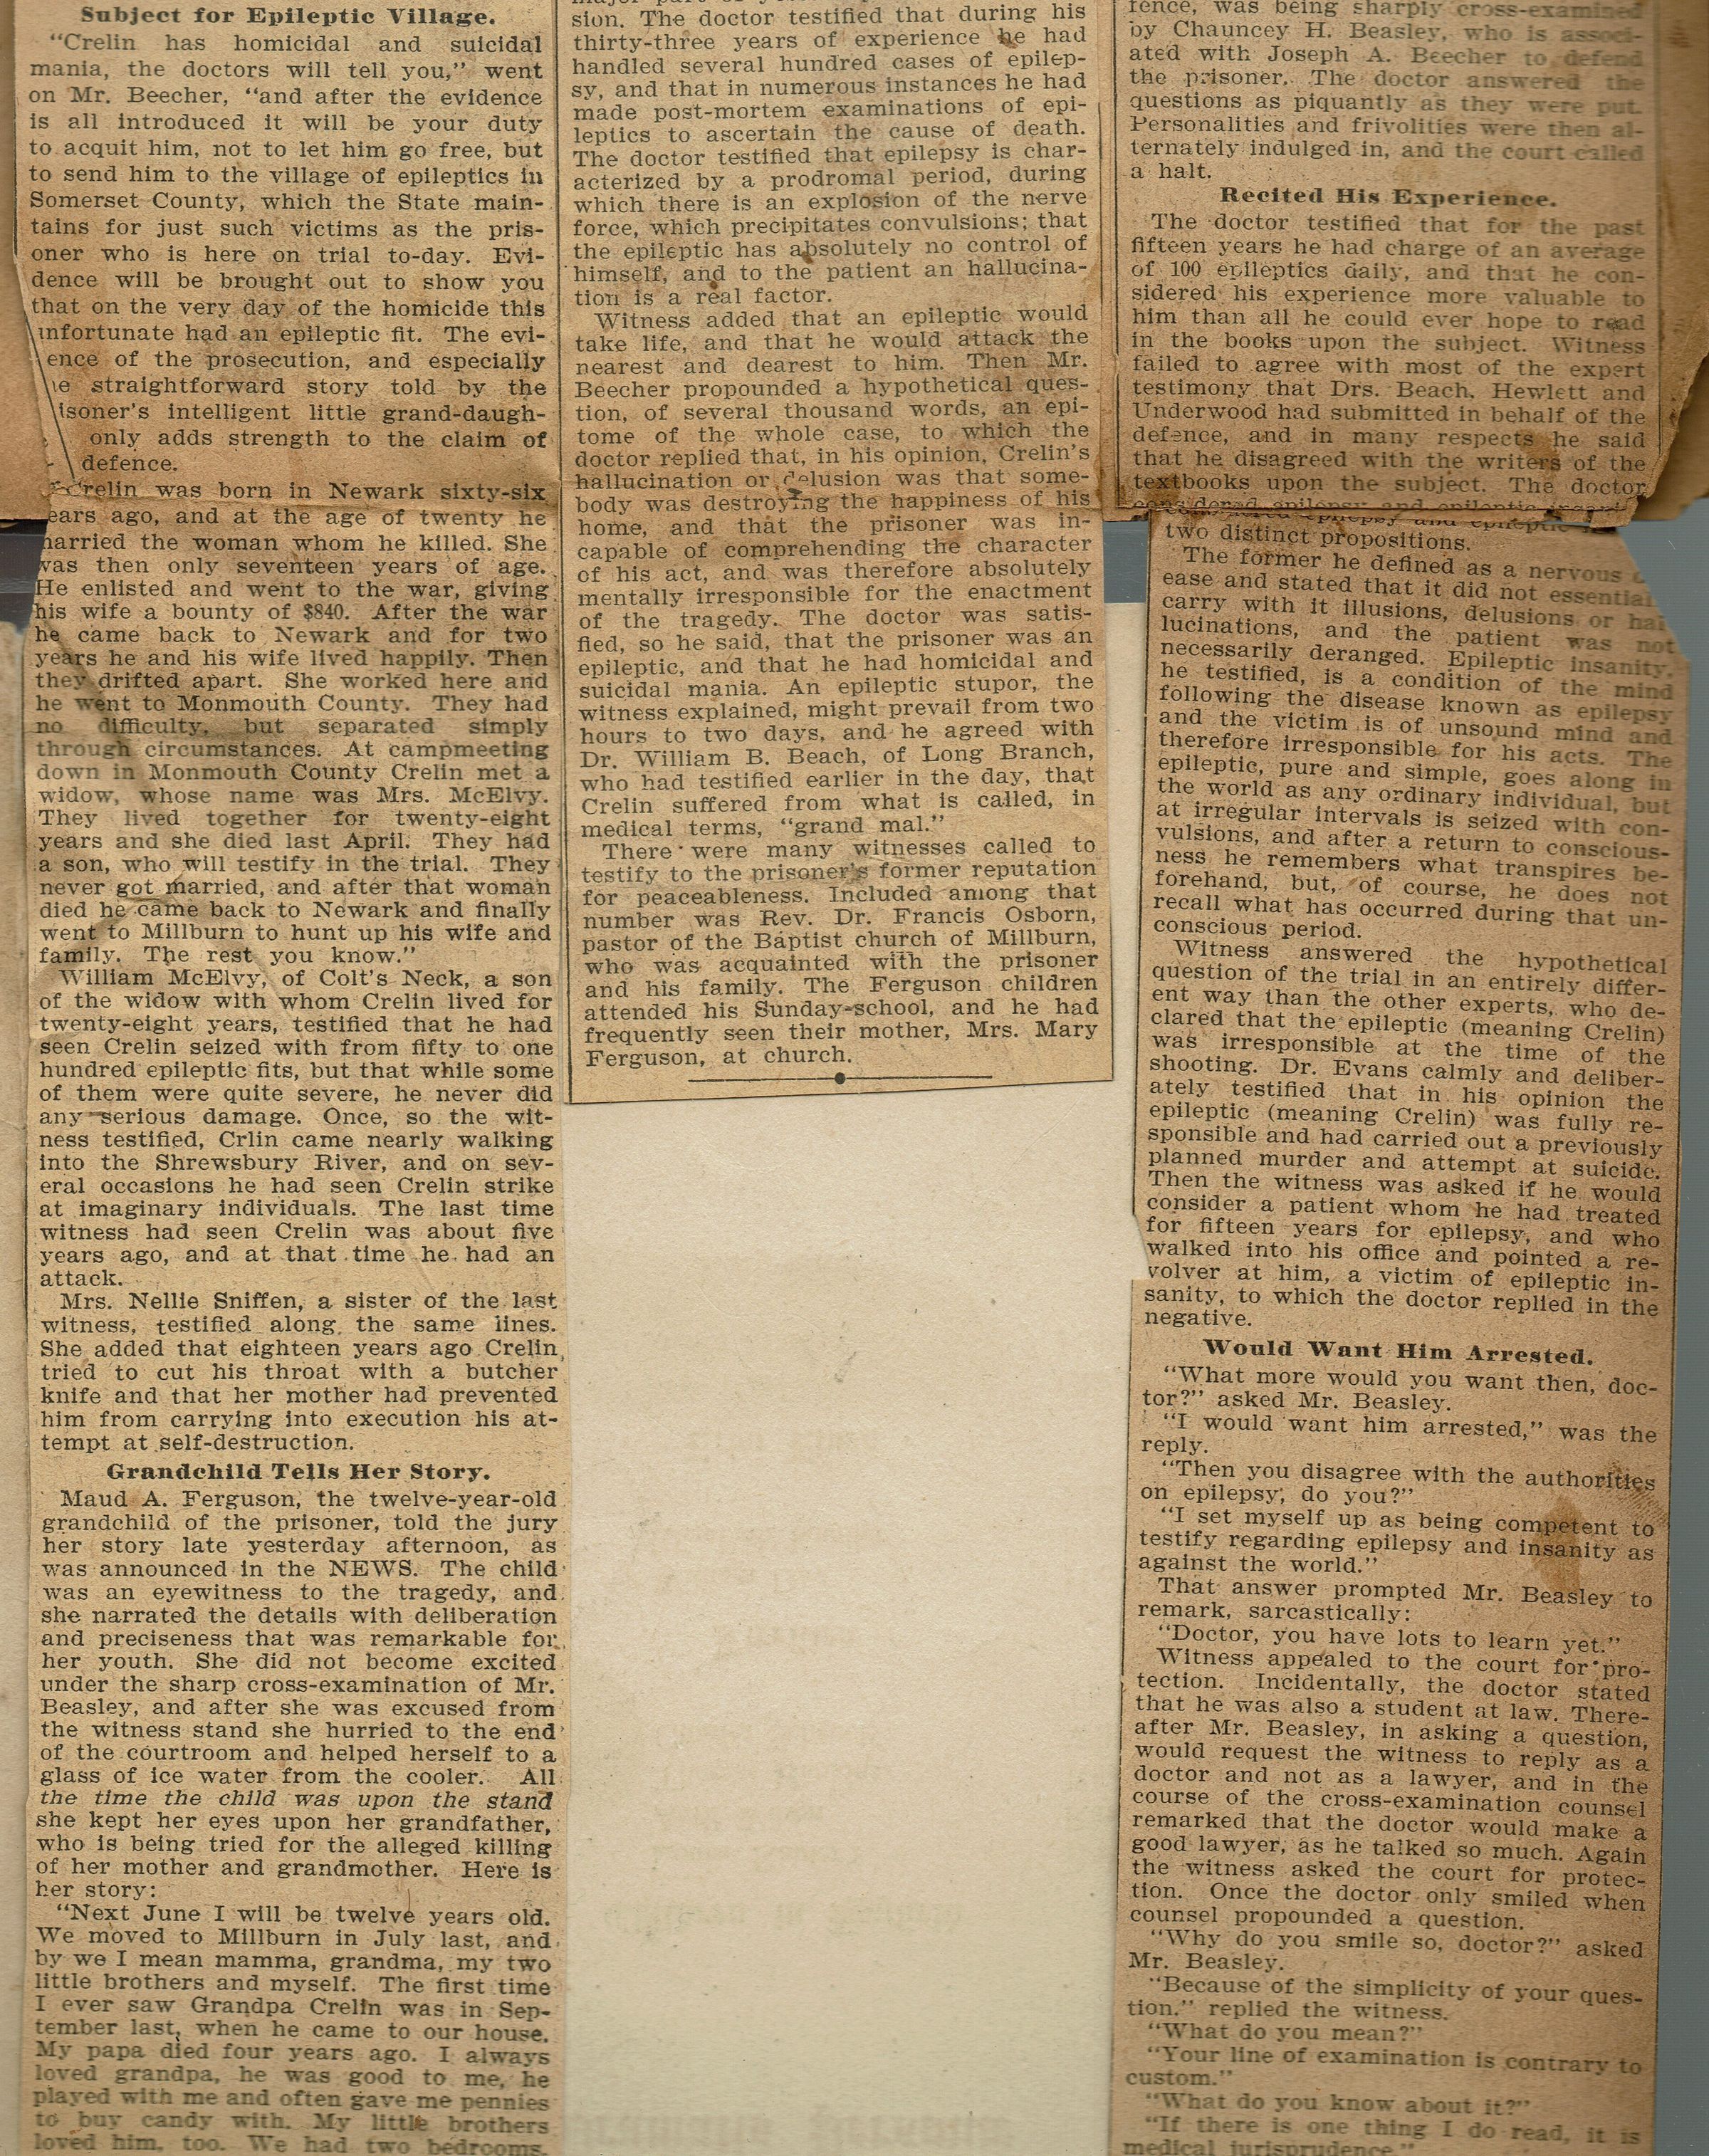 Subject for Epileptic Village.
"Crelin has homicidal and suicidal
mania, the doctors will tell you," went
on Mr. Beecher, "and after the evidence
is all introduced it will be your duty
to acquit him, not to let him go free, but
to send him to the village of epileptics in
Somerset County, which the State main-
tains for just such victims as the pris-
oner who is here on trial to-day. Evi-
dence will be brought out to show you
that on the very day of the homicide this
unfortunate had an epileptic fit. The evi-
ence of the prosecution, and especially
e straightforward story told by the
isoner's intelligent little grand-daugh-
only adds strength to the claim of
defence.
Crelin was born in Newark sixty-six
ears ago, and at the age of twenty he
married the woman whom he killed. She
was then only seventeen years of age.
He enlisted and went to the war, giving
his wife a bounty of $840. After the war
he came back to Newark and for two
years he and his wife lived happily. Then
they drifted apart. She worked here and
he went to Monmouth County. They had
no difficulty, but separated simply
through circumstances. At campmeeting
down in Monmouth County Crelin met a
widow, whose name was Mrs. McElvy.
They lived together for twenty-eight
years and she died last April. They had
a son, who will testify in the trial. They
never got married, and after that woman
died he came back to Newark and finally
went to Millburn to hunt up his wife and
family. The rest you know."
William McElvy, of Colt's Neck, a son
of the widow with whom Crelin lived for
twenty-eight years, testified that he had
seen Crelin seized with from fifty to one
hundred epileptic fits, but that while some
of them were quite severe, he never did
any serious damage. Once, so the wit-
ness testified, Crlin came nearly walking
into the Shrewsbury River, and on sev-
eral occasions he had seen Crelin strike
at imaginary individuals. The last time
witness had seen Crelin was about five
years ago, and at that time he had an
attack.
Mrs. Nellie Sniffen, a sister of the last
witness, testified along the same lines.
She added that eighteen years ago Crelin
tried to cut his throat with a butcher
knife and that her mother had prevented
him from carrying into execution his at-
tempt at self-destruction.
Grandchild Tells Her Story.
Maud A. Ferguson, the twelve-year-old
grandchild of the prisoner, told the jury
her story late yesterday afternoon, as
was announced in the NEWS. The child
was an eyewitness to the tragedy, and
she narrated the details with deliberation
and preciseness that was remarkable for
her youth. She did not become excited
under the sharp cross-examination of Mr.
Beasley, and after she was excused from
the witness stand she hurried to the end
of the courtroom and helped herself to a
glass of ice water from the cooler. All
the time the child was upon the stand
she kept her eyes upon her grandfather,
who is being tried for the alleged killing
of her mother and grandmother. Here is
her story:
"Next June I will be twelve years old.
We moved to Millburn in July last, and
by we I mean mamma, grandma, my two
little brothers and myself. The first time
I ever saw Grandpa Crelin was in Sep-
tember last, when he came to our house.
My papa died four years ago. I always
loved grandpa, he was good to me, he
played with me and often gave me pennies
to buy candy with. My little brothers
loved him, too. We had two bedrooms,
sion. The doctor testified that during his
thirty-three years of experience he had
handled several hundred cases of epilep-
sy, and that in numerous instances he had
made post-mortem examinations of epi-
leptics to ascertain the cause of death.
The doctor testified that epilepsy is char-
acterized by a prodromal period, during
which there is an explosion of the nerve
force, which precipitates convulsions; that
the epileptic has absolutely no control of
himself, and to the patient an hallucina-
tion is a real factor.
Witness added that an epileptic would
take life, and that he would attack the
nearest and dearest to him. Then Mr.
Beecher propounded a hypothetical ques-
tion, of several thousand words, an epi-
tome of the whole case, to which the
doctor replied that, in his opinion, Crelin's
hallucination or delusion was that some-
body was destroying the happiness of his
home, and that the prisoner was in-
capable of comprehending the character
of his act, and was therefore absolutely
mentally irresponsible for the enactment
of the tragedy. The doctor was satis-
fied, so he said, that the prisoner was an
epileptic, and that he had homicidal and
suicidal mania. An epileptic stupor, the
witness explained, might prevail from two
hours to two days, and he agreed with
Dr. William B. Beach, of Long Branch,
who had testified earlier in the day, that
Crelin suffered from what is called, in
medical terms, "grand mal."
There were many witnesses called to
testify to the prisoner's former reputation
for peaceableness. Included among that
number was Rev. Dr. Francis Osborn,
pastor of the Baptist church of Millburn,
who was acquainted with the prisoner
and his family. The Ferguson children
attended his Sunday-school, and he had
frequently seen their mother, Mrs. Mary
Ferguson, at church.
fence, was being sharply cross-examined
by Chauncey H. Beasley, who is associ-
ated with Joseph A. Beecher to defend
the prisoner. The doctor answered the
questions as piquantly as they were put.
Personalities and frivolities were then al-
ternately indulged in, and the court called
a halt.
Recited His Experience.
The doctor testified that for the past
fifteen years he had charge of an average
of 100 epileptics daily, and that he con-
sidered his experience more valuable to
him than all he could ever hope to read
in the books upon the subject. Witness
failed to agree with most of the expert
testimony that Drs. Beach, Hewlett and
Underwood had submitted in behalf of the
defence, and in many respects he said
that he disagreed with the writers of the
textbooks upon the subject. The doctor
considered epilepsy and epileptic
two distinct propositions.
The former he defined as a nervous
ease and stated that it did not essential
carry with it illusions, delusions or hal
lucinations, and the patient was not
necessarily deranged. Epileptic insanity,
he testified, is a condition of the mind
following the disease known as epilepsy
and the victim is of unsound mind and
therefore irresponsible for his acts. The
epileptic, pure and simple, goes along in
the world as any ordinary individual, but
at irregular intervals is seized with con-
vulsions, and after a return to conscious-
ness he remembers what transpires be-
forehand, but, of course, he does not
recall what has occurred during that un-
conscious period.
Witness answered the hypothetical
question of the trial in an entirely differ-
ent way than the other experts, who de-
clared that the epileptic (meaning Crelin)
was irresponsible at the time of the
shooting. Dr. Evans calmly and deliber-
ately testified that in his opinion the
epileptic (meaning Crelin) was fully re-
sponsible and had carried out a previously
planned murder and attempt at suicide.
Then the witness was asked if he would
consider a patient whom he had treated
for fifteen years for epilepsy, and who
walked into his office and pointed a re-
volver at him, a victim of epileptic in-
sanity, to which the doctor replied in the
negative.
Would Want Him Arrested.
"What more would you want then, doc-
tor?" asked Mr. Beasley.
"I would want him arrested," was the
reply.
"Then you disagree with the authorities
on epilepsy, do you?"
"I set myself up as being competent to
testify regarding epilepsy and insanity as
against the world."
That answer prompted Mr. Beasley to
remark, sarcastically:
"Doctor, you have lots to learn yet."
Witness appealed to the court for pro-
tection. Incidentally, the doctor stated
that he was also a student at law. There-
after Mr. Beasley, in asking a question,
would request the witness to reply as a
doctor and not as a lawyer, and in the
course of the cross-examination counsel
remarked that the doctor would make a
good lawyer, as he talked so much. Again
the witness asked the court for protec-
tion. Once the doctor only smiled when
counsel propounded a question.
"Why do you smile so, doctor?" asked
Mr. Beasley.
"Because of the simplicity of your ques-
tion." replied the witness.
"What do you mean?"
"Your line of examination is contrary to
custom."
"What do you know about it?"
"If there is one thing I do read, it is
medical jurisprudence."